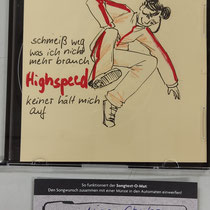 schmeiß weg
was ich nicht
mehr brauch
Highspeed
keiner hält mich
auf
So funktioniert der Songtext-O-Mat:
Den Songwunsch zusammen mit einer Münze in den Automaten einwerfen!